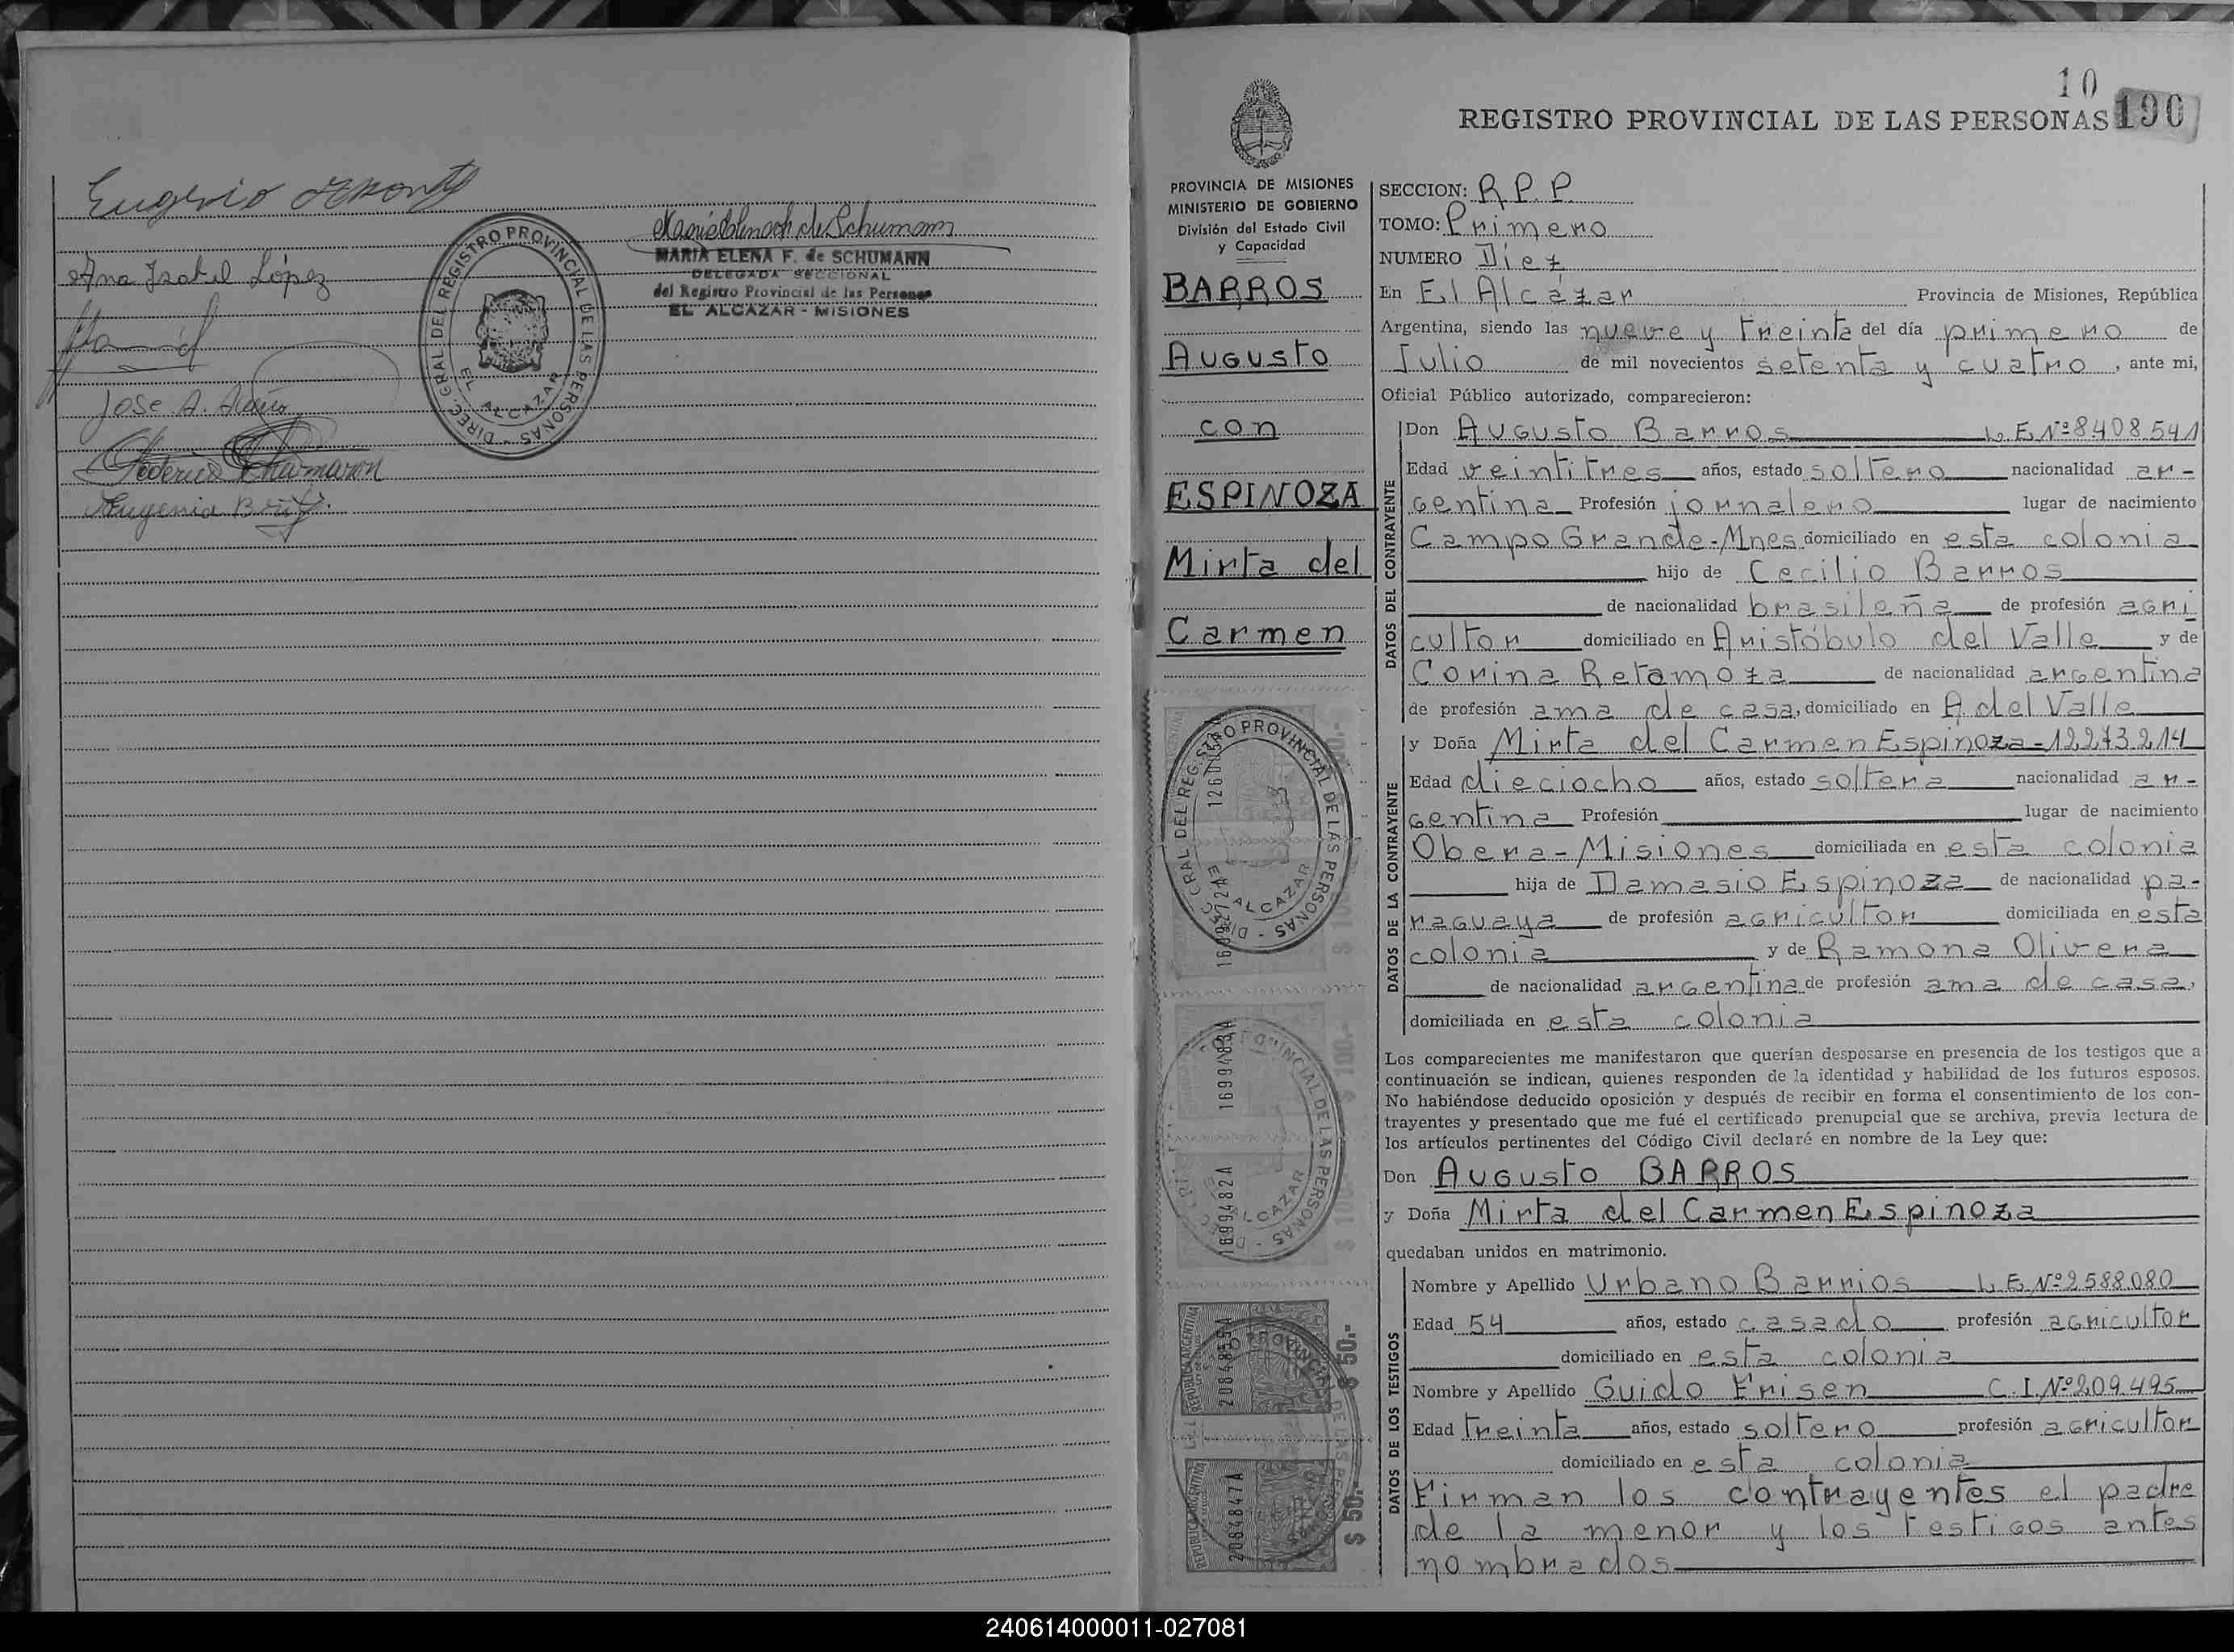 Eugenio
Ana Isabel López
Jose A.
Federico
Eugenia
DIREC. GRAL DEL REGISTRO PROVINCIAL DE LAS PERSONAS -
EL ALCAZAR
MARIA ELENA F. de SCHUMANN
DELEGADA SECCIONAL
del Registro Provincial de las Personas
EL ALCAZAR - MISIONES
10
REGISTRO PROVINCIAL DE LAS PERSONAS 190
PROVINCIA DE MISIONES
MINISTERIO DE GOBIERNO
División del Estado Civil
y Capacidad
BARROS
Augusto
con
ESPINOZA
Mirta del
Carmen
SECCION: R.P.P.
TOMO: Primero
NUMERO Diez
En El Alcázar Provincia de Misiones, República
Argentina, siendo las nueve y treinta del día primero de
Julio de mil novecientos setenta y cuatro, ante mi,
Oficial Público autorizado, comparecieron:
DATOS DEL CONTRAYENTE
Don Augusto Barros L.E.Nº8408541
Edad veintitres años, estado soltero nacionalidad ar-
gentina Profesión jornalero lugar de nacimiento
Campo Grande-Mnes domiciliado en esta colonia
hijo de Cecilio Barros
de nacionalidad brasileña de profesión agri
cultor domiciliado en Aristóbulo del Valle y de
Corina Retamoza de nacionalidad argentina
de profesión ama de casa, domiciliado en A del Valle
DATOS DE LA CONTRAYENTE
y Doña Mirta del Carmen Espinoza-12273214
Edad dieciocho años, estado soltera nacionalidad ar-
gentina Profesión lugar de nacimiento
Obera-Misiones domiciliada en esta colonia
hija de Damasio Espinoza de nacionalidad pa-
raguaya de profesión agricultor domiciliada en esta
colonia y de Ramona Olivera
de nacionalidad argentina de profesión ama de casa,
domiciliada en esta colonia
Los comparecientes me manifestaron que querían desposarse en presencia de los testigos que a
continuación se indican, quienes responden de la identidad y habilidad de los futuros esposos.
No habiéndose deducido oposición y después de recibir en forma el consentimiento de los con-
trayentes y presentado que me fué el certificado prenupcial que se archiva, previa lectura de
los artículos pertinentes del Código Civil declaré en nombre de la Ley que:
Don Augusto BARROS
y Doña Mirta del Carmen Espinoza
quedaban unidos en matrimonio.
DATOS DE LOS TESTIGOS
Nombre y Apellido Urbano Barrios L.E.Nº2588080
Edad 54 años, estado casado profesión agricultor
domiciliado en esta colonia
Nombre y Apellido Guido Frisen C.I.Nº209.495
Edad treinta años, estado soltero profesión agricultor
domiciliado en esta colonia
Firman los contrayentes el padre
de la menor y los testigos antes
nombrados
DIREC. GRAL DEL REGISTRO PROVINCIAL DE LAS PERSONAS -
EL ALCAZAR
1699483A
1699482A
REPUBLICA ARGENTINA
2084847A
$ 50.-
240614000011-027081